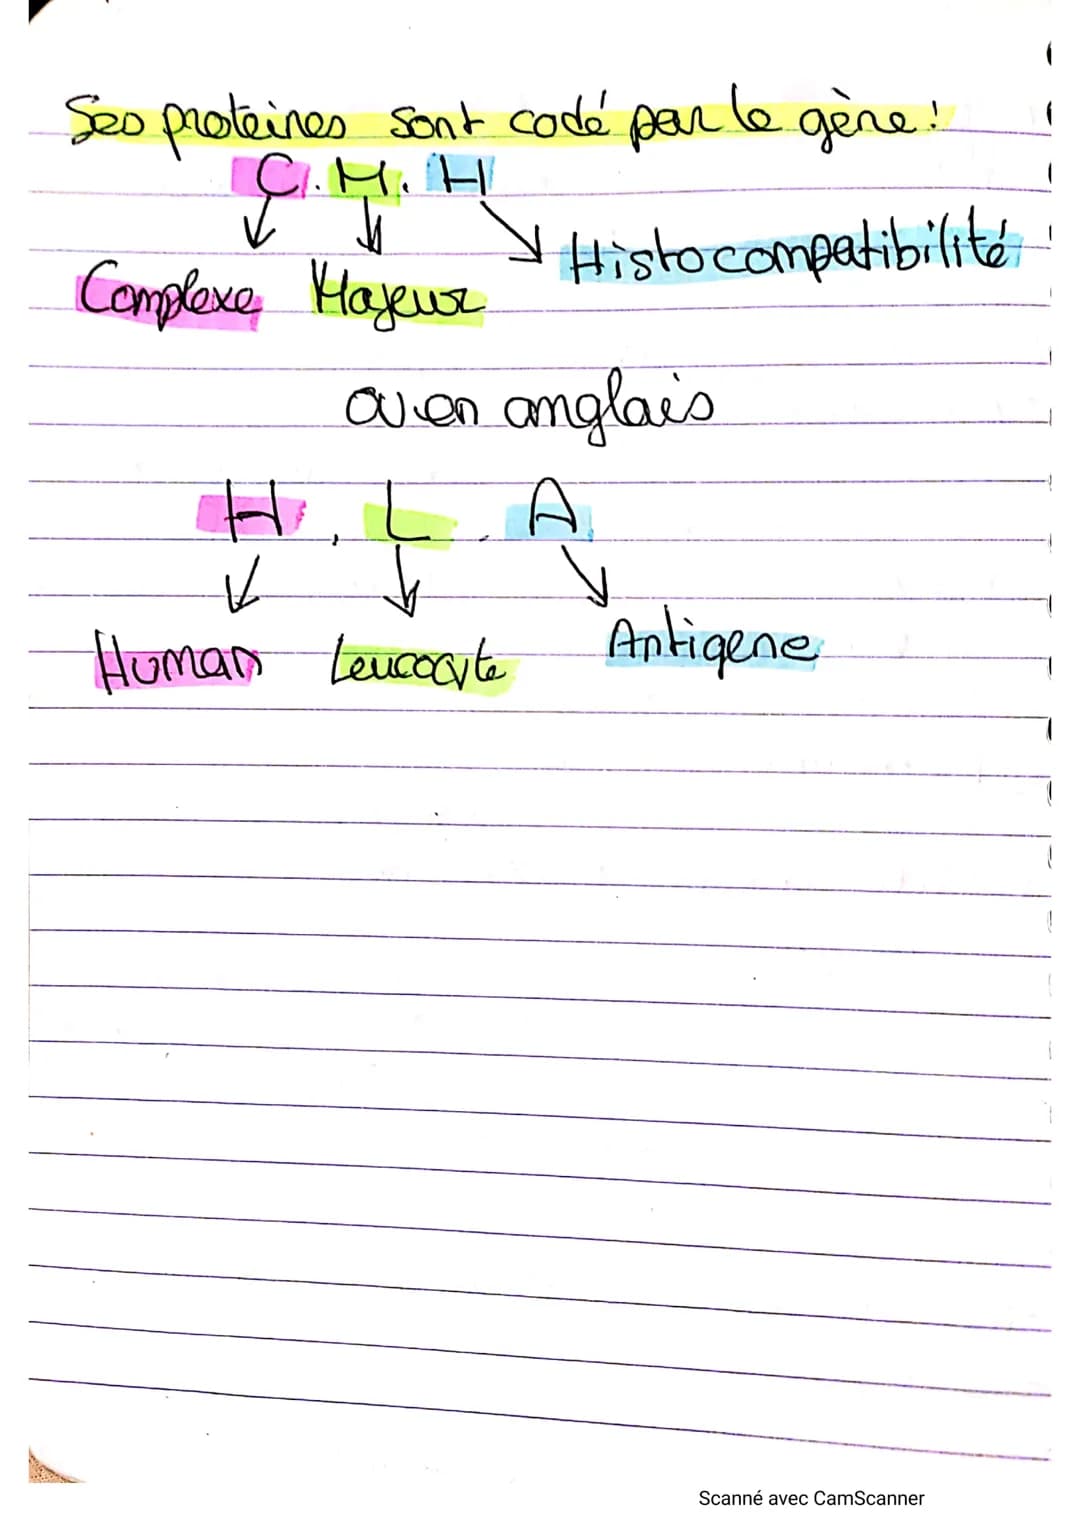 Ses proteines sont codé par le gène!
C.M.H
Histocompatibilité
Complexe Majeur
ou en anglais
H.L.A
Human Leucocyte Antigene
Scanné avec CamScanner